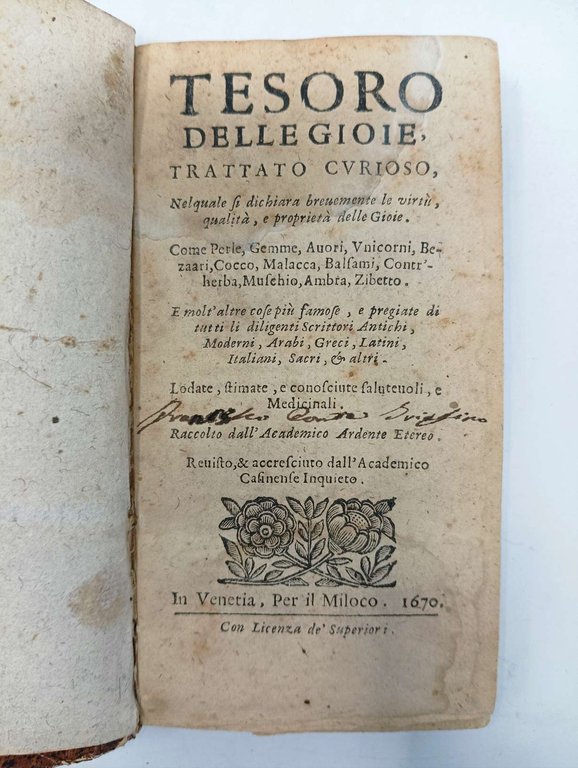 TESORO
DELLE GIOIE,
TRATTATO CVRIOSO,
Nel quale si dichiara breuemente le virtù,
qualità, e proprietà delle Gioie.
Come Perle, Gemme, Auori, Vnicorni, Be-
zaari, Cocco, Malacca, Balsami, Contr'-
herba, Muschio, Ambra, Zibetto.
E molt'altre cose più famose, e pregiate di
tutti li diligenti Scrittori Antichi,
Moderni, Arabi, Greci, Latini,
Italiani, Sacri, & altri.
Lodate, stimate, e conosciute saluteuoli, e
Medicinali.
Raccolto dall'Academico Ardente Etereo.
Reuisto, & accresciuto dall'Academico
Casinense Inquieto.
In Venetia, Per il Miloco. 1670.
Con Licenza de' Superiori.